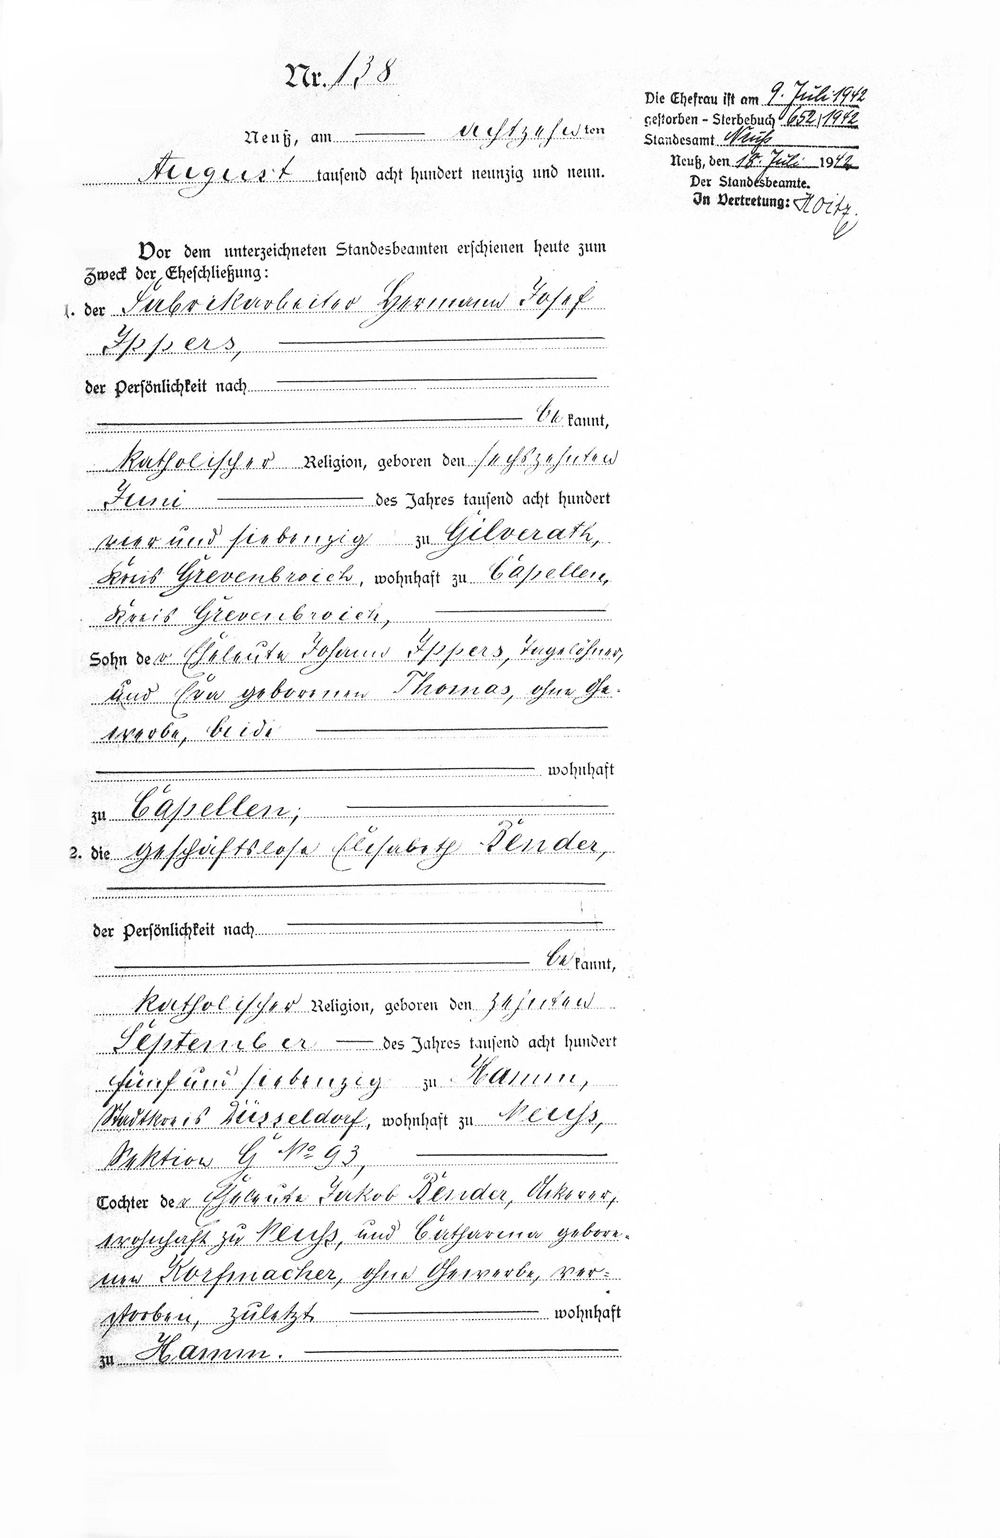 Nr. 138
Neuß, am achtzehnten
August tausend acht hundert neunzig und neun.
Die Ehefrau ist am 9. Juli 1942
gestorben - Sterbebuch 652/1942
Standesamt Neuß
Neuß, den 18. Juli 1942
Der Standesbeamte.
In Vertretung:
Vor dem unterzeichneten Standesbeamten erschienen heute zum
Zweck der Eheschließung:
1. der Fabrikarbeiter Hermann Josef
Ippers,
der Persönlichkeit nach
bekannt,
katholischer Religion, geboren den sechszehnten
Juni des Jahres tausend acht hundert
vier und siebenzig zu Gilverath,
Kreis Grevenbroich, wohnhaft zu Capellen,
Kreis Grevenbroich,
Sohn der Eheleute Johann Ippers, Tagelöhner,
und Eva geborenen Thomas, ohne Ge-
werbe, beide
wohnhaft
zu Capellen;
2. die geschäftslose Elisabeth Bender,
der Persönlichkeit nach
bekannt,
katholischer Religion, geboren den zehnten
September des Jahres tausend acht hundert
fünf und siebenzig zu Hamm,
Stadtkreis Düsseldorf, wohnhaft zu Neuss,
Sektion G No 93,
Tochter der Eheleute Jakob Bender, Ackerer,
wohnhaft zu Neuss, und Catharina gebore-
nen Korfmacher, ohne Gewerbe, ver-
storben, zuletzt wohnhaft
zu Hamm.